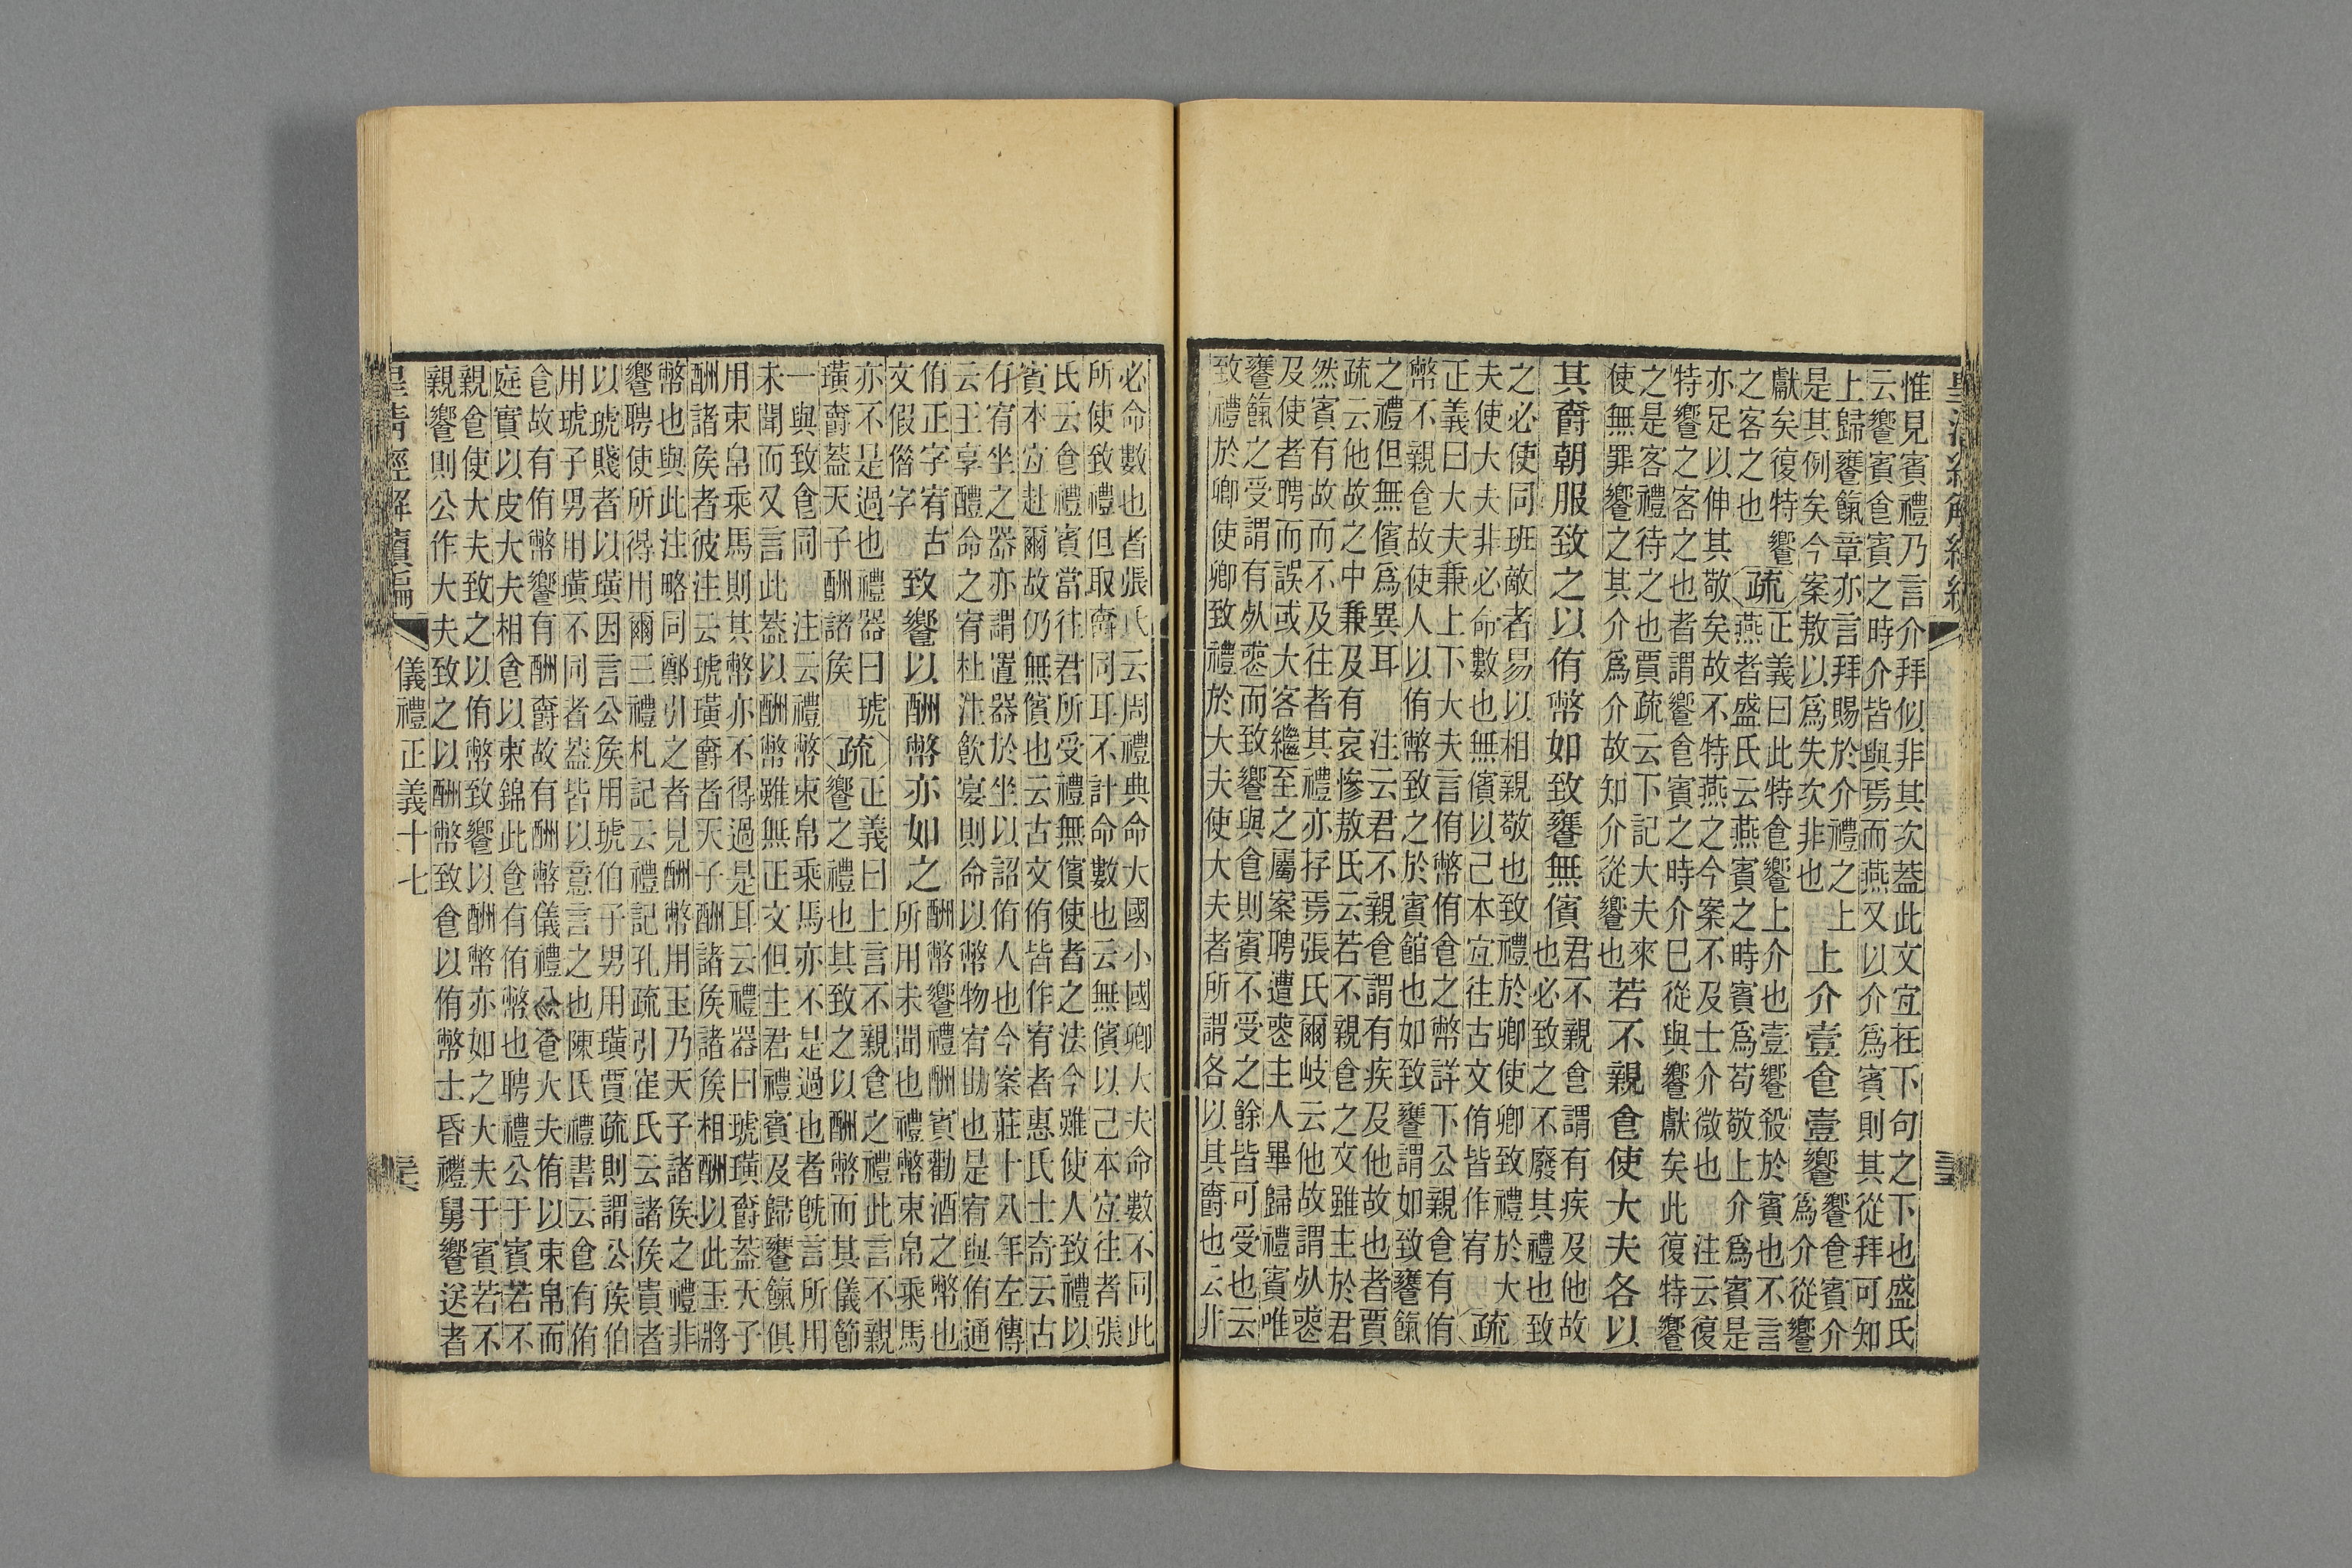 惟見賓禮乃言介拜似非其次蓋此文宐在下句之下也盛氏
云饗賓食賓之時介皆與焉而燕又以介爲賓則其從拜可知
上歸饔餼章亦言拜賜於介禮之上
是其例矣今案敖以爲失次非也
上介壹食壹饗
饗食賓介
爲介從饗
獻矣復特饗
之客之也
疏
正義曰此特食饗上介也壹饗殺於賓也不言
燕者盛氏云燕賓之時賓爲苟敬上介爲賓是
亦足以伸其敬矣故不特燕之今案不及士介微也 注云復
特饗之客之也者謂饗食賓之時介已從與饗獻矣此復特饗
之是客禮待之也賈疏云下記大夫來
使無罪饗之其介爲介故知介從饗也
若不親食使大夫各以
其爵朝服致之以侑幣如致饔無儐
君不親食謂有疾及他故
也必致之不廢其禮也致
之必使同班敵者易以相親敬也致禮於卿使卿致禮於大
夫使大夫非必命數也無儐以己本宐往古文侑皆作宥
疏
正義曰大夫兼上下大夫言侑幣侑食之幣詳下公親食有侑
幣不親食故使人以侑幣致之於賓館也如致饔謂如致饔餼
之禮但無儐爲異耳 注云君不親食謂有疾及他故也者賈
疏云他故之中兼及有哀慘敖氏云若不親食之文雖主於君
然賓有故而不及往者其禮亦存焉張氏爾岐云他故謂𣦸喪
及使者聘而誤或大客繼至之屬案聘遭喪主人畢歸禮賓唯
饔餼之受謂有𣦸喪而致饗與食則賓不受之餘皆可受也云
致禮於卿使卿致禮於大夫使大夫者所謂各以其爵也云非
必命數也者張氏云周禮典命大國小國卿大夫命數不同此
所使致禮但取爵同耳不計命數也云無儐以己本宐往者張
氏云食禮賓當往君所受禮無儐使者之法今雖使人致禮以
賓本宐赴爾故仍無儐也云古文侑皆作宥者惠氏士奇云古
有宥坐之器亦謂置器於坐以詔侑人也今案莊十八年左傳
云王享醴命之宥杜注飲宴則命以幣物宥助也是宥與侑通
侑正字宥古
文假僭字
致饗以酬幣亦如之
酬幣饗禮酬賓勸酒之幣也
所用未聞也禮幣束帛乘馬
亦不是過也禮器曰琥
璜爵蓋天子酬諸矦
疏
正義曰上言不親食之禮此言不親
饗之禮也其致之以酬幣而其儀節
一與致食同 注云禮幣束帛乘馬亦不是過也者旣言所用
未聞而又言此蓋以酬幣雖無正文但主君禮賓及歸饔餼俱
用束帛乘馬則其幣亦不得過是耳云禮器曰琥璜爵蓋天子
酬諸矦者彼注云琥璜爵者天子酬諸矦諸矦相酬以此玉將
幣也與此注略同鄭引之者見酬幣用玉乃天子諸矦之禮非
饗聘使所得用爾三禮札記云禮記孔疏引崔氏云諸矦貴者
以琥賤者以璜因言公矦用琥伯子男用璜賈疏則謂公矦伯
用琥子男用璜不同者蓋皆以意言之也陳氏禮書云食有侑
食故有侑幣饗有酬爵故有酬幣儀禮公食大夫侑以束帛而
庭實以皮大夫相食以束錦此食有侑幣也聘禮公于賓若不
親食使大夫致之以侑幣致饗以酬幣亦如之大夫于賓若不
親饗則公作大夫致之以酬幣致食以侑幣士昏禮舅饗送者
皇清經解續編
儀禮正義十七